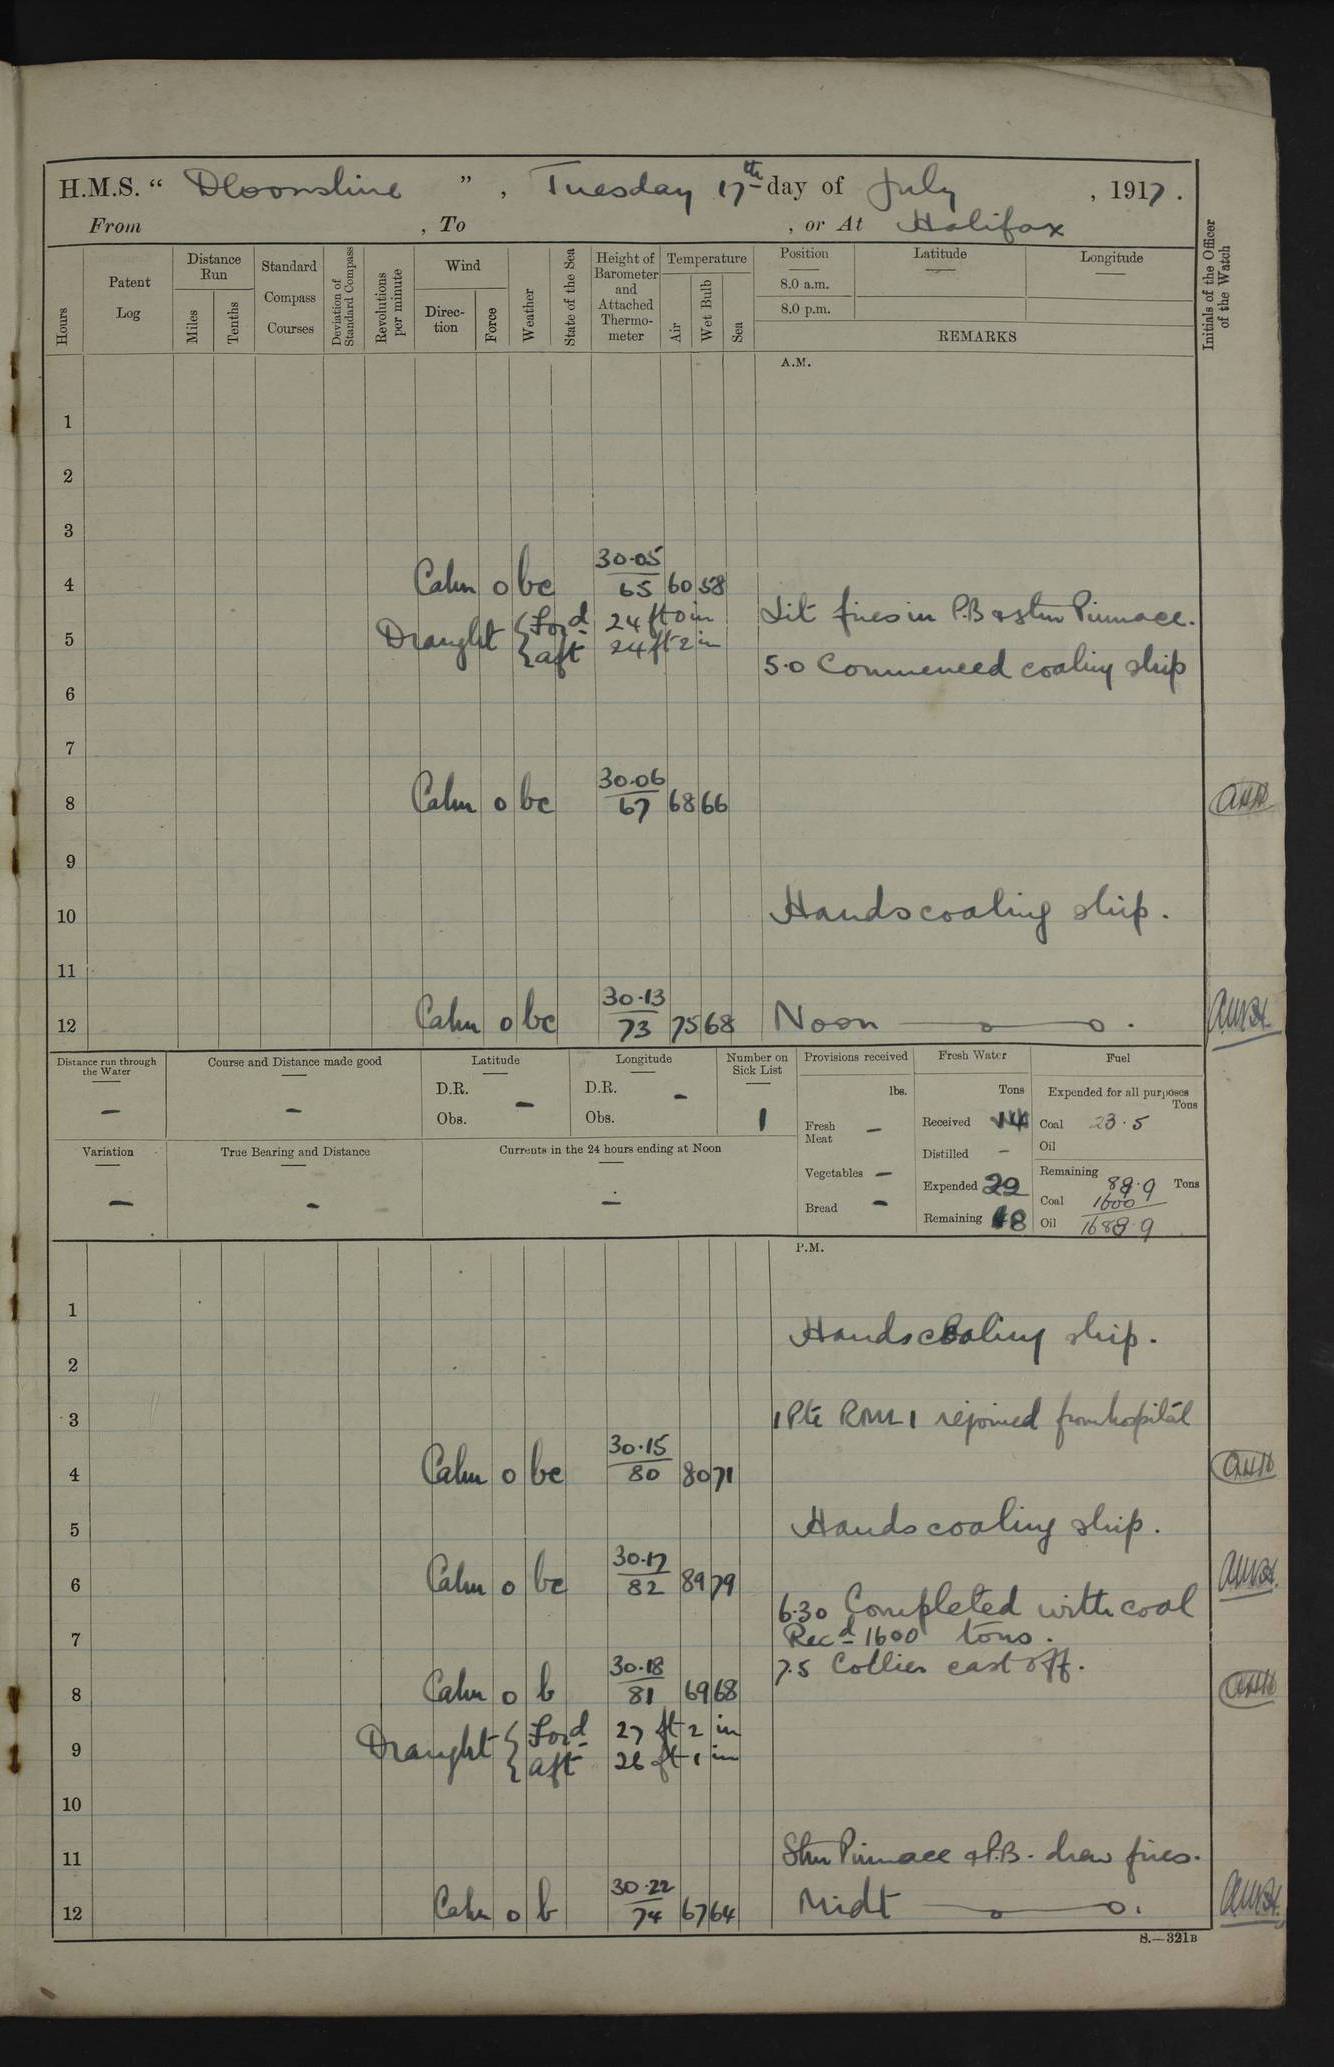 H.M.S. “ Devonshire ” , Tuesday 17th day of July , 1917 .
From , To , or At Halifax
Hours
Patent Log
Distance Run
Miles
Tenths
Standard Compass Courses
Deviation of Standard Compass
Revolutions per minute
Wind
Direc-tion
Force
Weather
State of the Sea
Height of Barometer and Attached Thermo-meter
Temperature
Air
Wet Bulb
Sea
Position
8.0 a.m.
8.0 p.m.
Latitude
Longitude
REMARKS
Initials of the Officer of the Watch
A.M.
1
2
3
4 Calm 0 bc 30.05 65 60 58
Lit fires in P.B & stm Pinnace.
5 Draught { Ford 24 ft 0 in
{ aft 24 ft 2 in
5.0 Commenced coaling ship
6
7
8 Calm 0 bc 30.06 67 68 66
9
10 Hands coaling ship.
11
12 Calm 0 bc 30.13 73 75 68 Noon
Distance run through the Water
—
Course and Distance made good
—
Latitude
D.R. —
Obs.
Longitude
D.R. —
Obs.
Number on Sick List
1
Provisions received
lbs.
Fresh Meat —
Vegetables —
Bread —
Fresh Water
Tons
Received 14
Distilled -
Expended 22
Remaining 18
Fuel
Expended for all purposes
Tons
Coal 23.5
Oil
Remaining Tons
Coal 1600
Oil
Variation
—
True Bearing and Distance
-
Currents in the 24 hours ending at Noon
—
P.M.
1 Hands coaling ship.
2
3 1 Pte RMLI rejoined from hospital
4 Calm 0 bc 30.15 80 80 71
5 Hands coaling ship.
6 Calm 0 bc 30.17 82 89 79
6.30 Completed with coal
7 Recd 1600 tons.
7.5 Collier cast off.
8 Calm 0 b 30.18 81 69 68
9 Draught { Ford 27 ft 2 in
{ aft 26 ft 1 in
10
11 Stm Pinnace & P.B. drew fires.
12 Calm 0 b 30.22 74 67 64 Midt
S.—321B